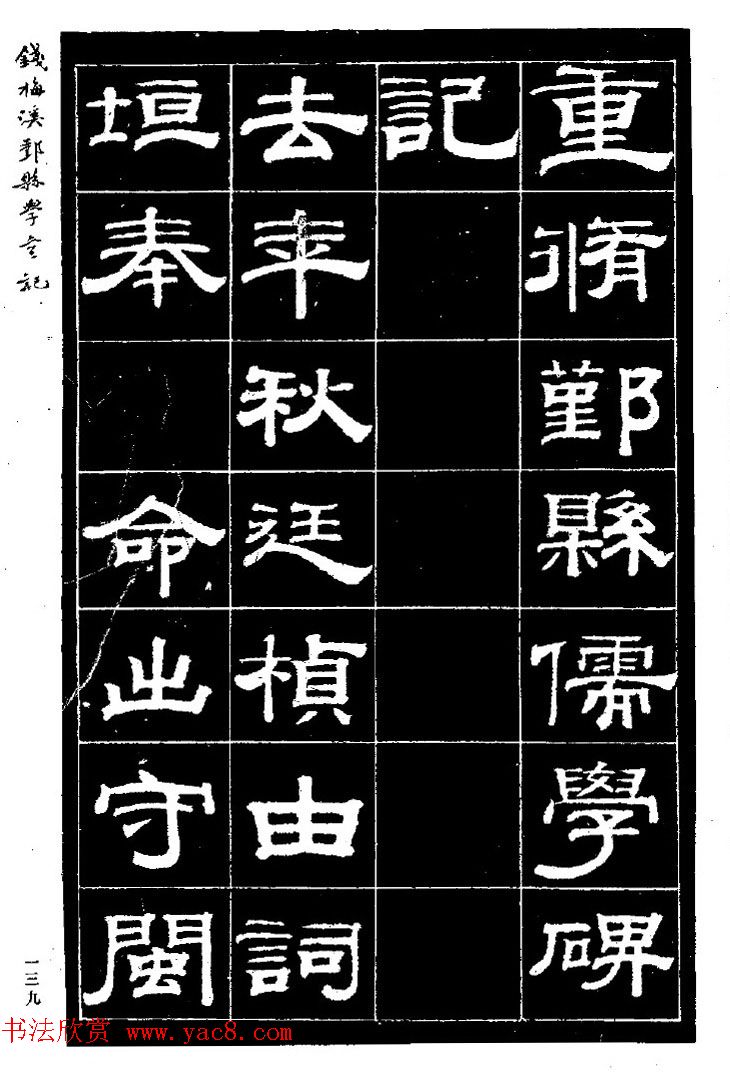 重脩鄞縣儒學碑
記
去年秋廷楨由詞
垣奉 命出守閩
錢梅溪鄞縣學宮記
一三九
书法欣赏 www.yac8.com